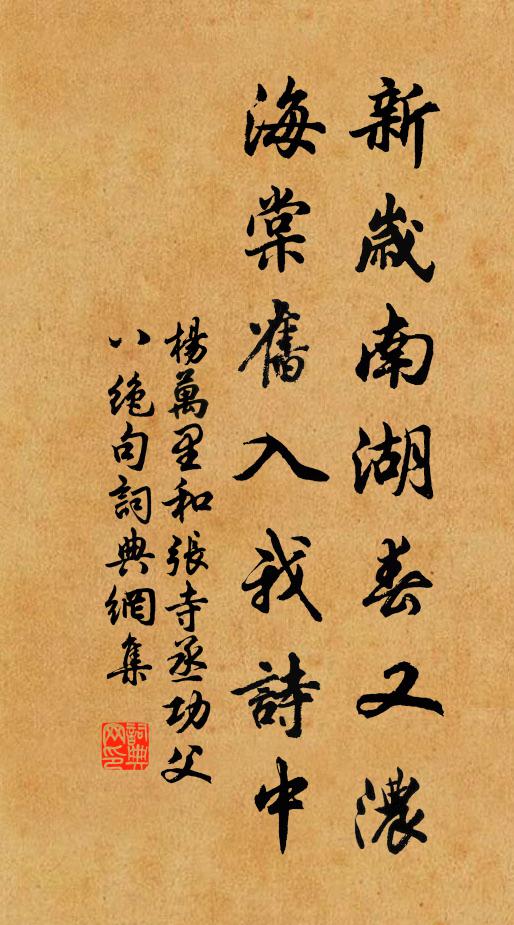 新歲南湖春又濃
海棠舊入我詩中
楊萬里和張寺丞功父
八絕句詞典網集
詞典網印